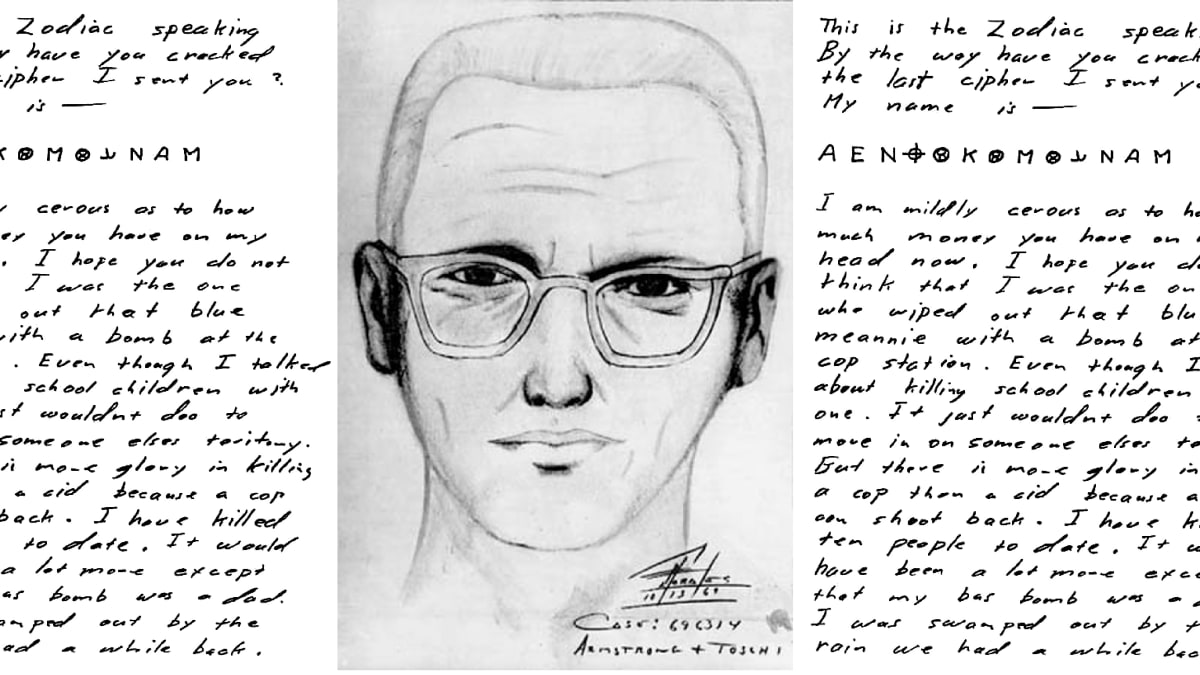 Zodiac speaking
y have you cracked
cipher I sent you ?.
is —
K ⊗ M ⊗ N A M
y cerous as to how
ey you have on my
. I hope you do not
I was the one
out that blue
ith a bomb at the
. Even though I talked
school children with
st wouldnt doo to
someone elses teritory.
is more glory in killing
a cid because a cop
back. I have killed
to date. It would
a lot more except
as bomb was a dud.
amped out by the
ad a while back.
10/13/69
Case: 696314
ARMSTRONG + TOSCHI
This is the Zodiac speak
By the way have you crack
the last cipher I sent yo
My name is —
A E N ⌖ ⊗ K ⊗ M ⊗ N A M
I am mildly cerous as to ho
much money you have on
head now. I hope you do
think that I was the on
who wiped out that blu
meannie with a bomb at
cop station. Even though I
about killing school children
one. It just wouldnt doo t
move in on someone elses te
But there is more glory in
a cop than a cid because a
can shoot back. I have ki
ten people to date. It w
have been a lot more exce
that my bas bomb was a
I was swamped out by t
rain we had a while bac